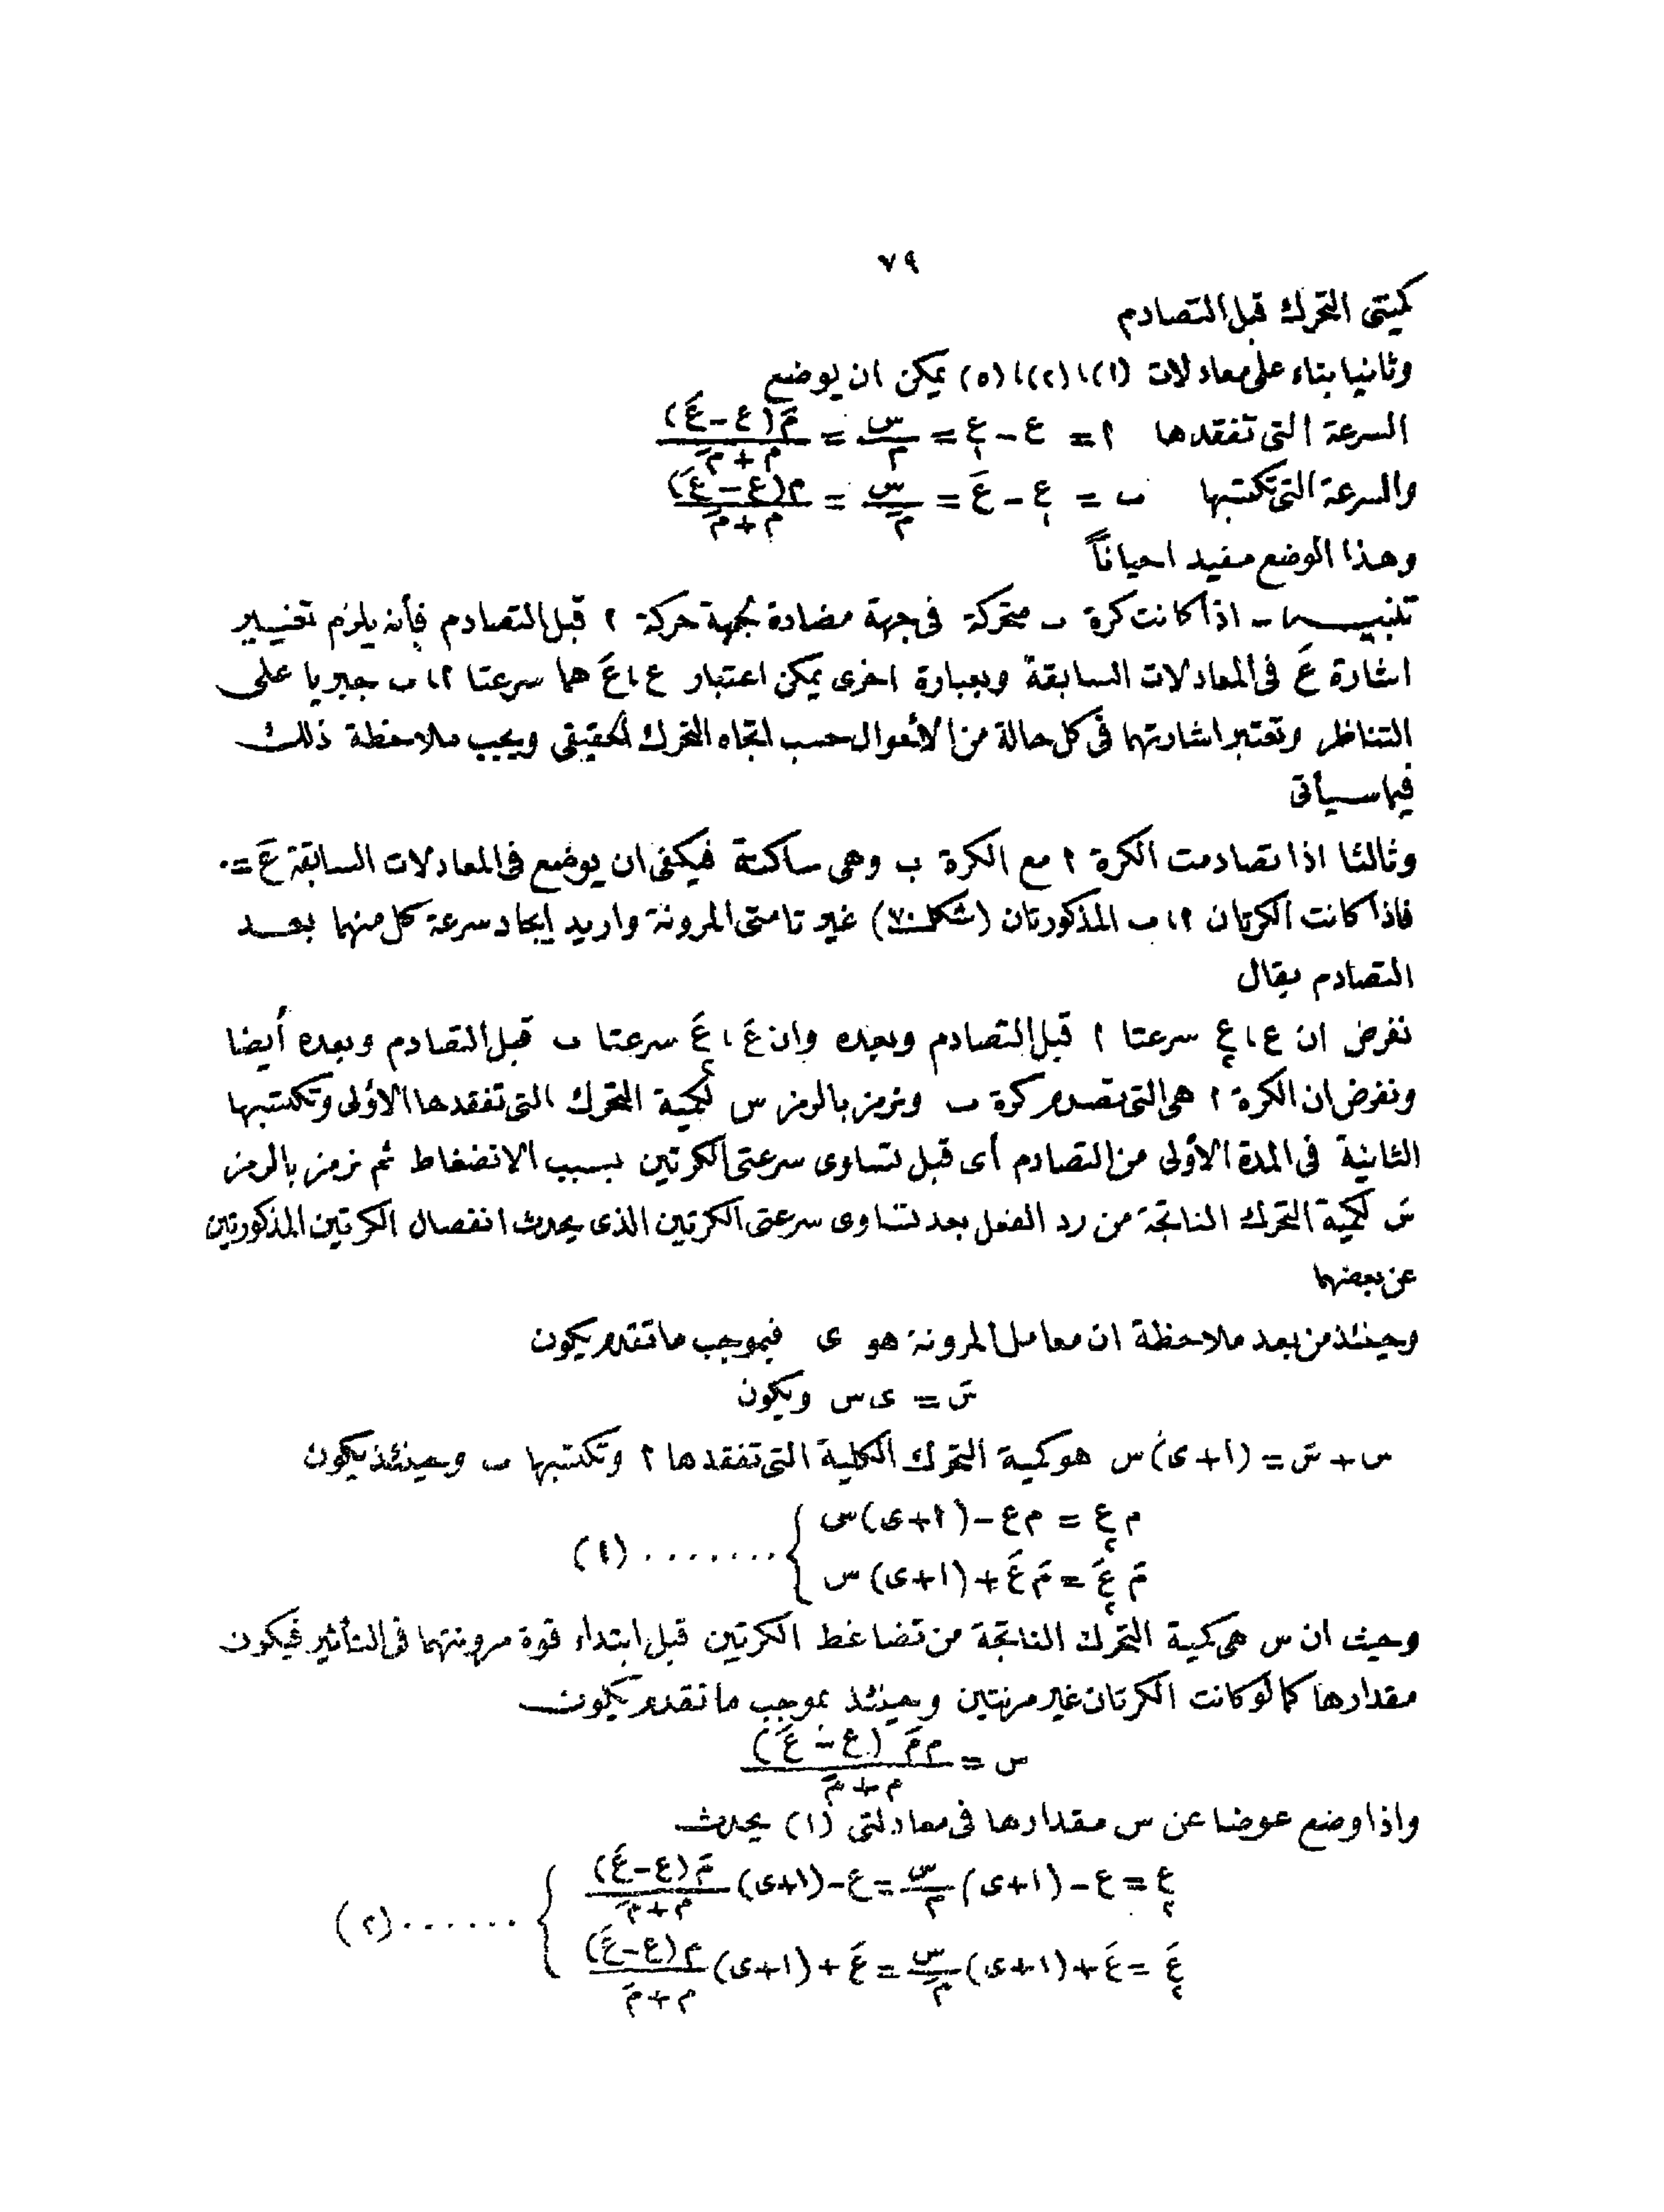 ٧٩
كميتى التحرك قبل التصادم
وثانيا بناء على معادلات (١)،(٢)،(٥) يمكن ان يوضع
السرعة التى تفقدها ا = ع − ع₁ = س/م = مَ(ع − عَ)/(م + مَ)
والسرعة التى تكتسبها ب = ع₁ − عَ = س/مَ = م(ع − عَ)/(م + مَ)
وهذا الوضع مفيد احياناً
تنبيه - اذا كانت كرة ب متحركة فى جهة مضادة لجهة حركة ا قبل التصادم فأنه يلزم تغيير
اشارة عَ فى المعادلات السابقة وبعبارة اخرى يمكن اعتبار ع،عَ هما سرعتا ا،ب جبريا على
التناظر وتعتبر اشارتهما فى كل حالة من الأحوال حسب اتجاه التحرك الحقيقى ويجب ملاحظة ذلك
فيما سيأتى
وثالثا اذا تصادمت الكرة ا مع الكرة ب وهى ساكنة فيكفى ان يوضع فى المعادلات السابقة عَ = ٠
فاذا كانت الكرتان ا،ب المذكورتان (شكل ٧٠) غير تامتى المرونة واريد إيجاد سرعة كل منهما بعد
التصادم يقال
نفرض ان ع،ع₂ سرعتا ا قبل التصادم وبعده وان عَ،عَ₂ سرعتا ب قبل التصادم وبعده أيضا
ونفرض ان الكرة ا هى التى تصدم كرة ب ونرمز بالرمز س لكمية التحرك التى تفقدها الأولى وتكتسبها
الثانية فى المدة الأولى من التصادم أى قبل تساوى سرعتى الكرتين بسبب الانضغاط ثم نرمز بالرمز
سَ لكمية التحرك الناتجة من رد الفعل بعد تساوى سرعتى الكرتين الذى يحدث انفصال الكرتين المذكورتين
عن بعضهما
وحينئذ من بعد ملاحظة ان معامل المرونة هو ى فبموجب ما تقدم يكون
سَ = ى س ويكون
س + سَ = (١+ى)س هو كمية التحرك الكلية التى تفقدها ا وتكتسبها ب وحينئذ يكون
م ع₂ = م ع − (١+ى)س
مَ عَ₂ = مَ عَ + (١+ى)س } ....... (١)
وحيث ان س هى كمية التحرك الناتجة من تضاغط الكرتين قبل ابتداء قوة مرونتهما فى التأثير فيكون
مقدارها كما لو كانت الكرتان غير مرنتين وحينئذ بموجب ما تقدم يكون
س = م مَ (ع − عَ)/(م + مَ)
واذا وضع عوضا عن س مقدارها فى معادلتى (١) يحدث
ع₂ = ع − (١+ى) س/م = ع − (١+ى) مَ(ع−عَ)/(م+مَ)
عَ₂ = عَ + (١+ى) س/مَ = عَ + (١+ى) م(ع−عَ)/(م+مَ) } ...... (٢)